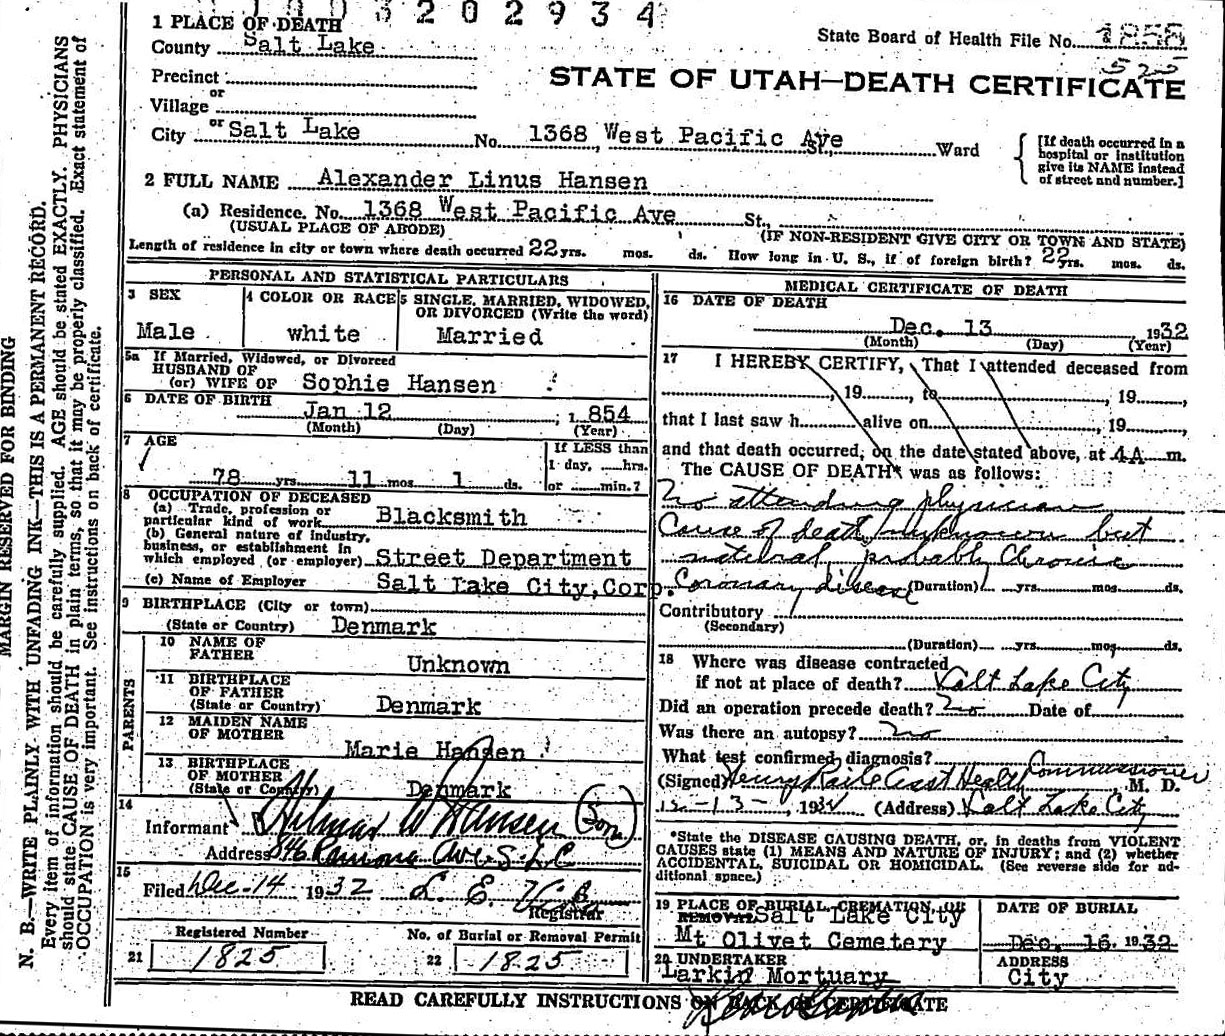 3 2 0 2 9 3 4
1 PLACE OF DEATH
County Salt Lake
State Board of Health File No. 1858
525
STATE OF UTAH—DEATH CERTIFICATE
Precinct
or
Village
or
City Salt Lake No. 1368 West Pacific Ave St., Ward
[If death occurred in a hospital or institution give its NAME instead of street and number.]
2 FULL NAME Alexander Linus Hansen
(a) Residence. No. 1368 West Pacific Ave St.,
(USUAL PLACE OF ABODE) (IF NON-RESIDENT GIVE CITY OR TOWN AND STATE)
Length of residence in city or town where death occurred 22 yrs. mos. ds. How long in U. S., if of foreign birth? 22 yrs. mos. ds.
PERSONAL AND STATISTICAL PARTICULARS
3 SEX
Male
4 COLOR OR RACE
white
5 SINGLE, MARRIED, WIDOWED, OR DIVORCED (Write the word)
Married
5a If Married, Widowed, or Divorced
HUSBAND OF
(or) WIFE OF Sophie Hansen
6 DATE OF BIRTH
Jan 12 1 854
(Month) (Day) (Year)
7 AGE
78 yrs 11 mos 1 ds.
If LESS than
1 day, hrs.
or min.?
8 OCCUPATION OF DECEASED
(a) Trade, profession or
particular kind of work Blacksmith
(b) General nature of industry,
business, or establishment in
which employed (or employer) Street Department
(c) Name of Employer Salt Lake City, Corp.
9 BIRTHPLACE (City or town)
(State or Country) Denmark
PARENTS
10 NAME OF
FATHER Unknown
11 BIRTHPLACE
OF FATHER
(State or Country) Denmark
12 MAIDEN NAME
OF MOTHER
Marie Hansen
13 BIRTHPLACE
OF MOTHER
(State or Country) Denmark
14
Informant Hilmar W Hansen (Son)
Address 846 Ramona Ave. S. L. C
15
Filed Dec-14 1932 L. E.
Registrar
Registered Number
21 1825
No. of Burial or Removal Permit
22 1825
MEDICAL CERTIFICATE OF DEATH
16 DATE OF DEATH
Dec. 13 1932
(Month) (Day) (Year)
17 I HEREBY CERTIFY, That I attended deceased from
, 19, to , 19,
that I last saw h alive on , 19
and that death occurred, on the date stated above, at 4A m.
The CAUSE OF DEATH* was as follows:
No attending physician
Cause of death unknown but
natural, probably Chronic
Coronary disease (Duration) yrs. mos. ds.
Contributory
(Secondary)
(Duration) yrs. mos. ds.
18 Where was disease contracted
if not at place of death? Salt Lake City
Did an operation precede death? No Date of
Was there an autopsy? No
What test confirmed diagnosis?
(Signed) Henry Raile Asst Health Commissioner M. D.
12-13-, 1932 (Address) Salt Lake City
*State the DISEASE CAUSING DEATH, or, in deaths from VIOLENT
CAUSES state (1) MEANS AND NATURE OF INJURY; and (2) whether
ACCIDENTAL, SUICIDAL OR HOMICIDAL. (See reverse side for additional space.)
19 PLACE OF BURIAL, CREMATION, OR
REMOVAL Salt Lake City
Mt Olivet Cemetery
DATE OF BURIAL
Dec. 16, 1932
20 UNDERTAKER
Larkin Mortuary
ADDRESS
City
READ CAREFULLY INSTRUCTIONS ON BACK OF CERTIFICATE
MARGIN RESERVED FOR BINDING
N. B.—WRITE PLAINLY WITH UNFADING INK—THIS IS A PERMANENT RECORD.
Every item of information should be carefully supplied. AGE should be stated EXACTLY. PHYSICIANS
should state CAUSE OF DEATH in plain terms, so that it may be properly classified. Exact statement of
OCCUPATION is very important. See instructions on back of certificate.